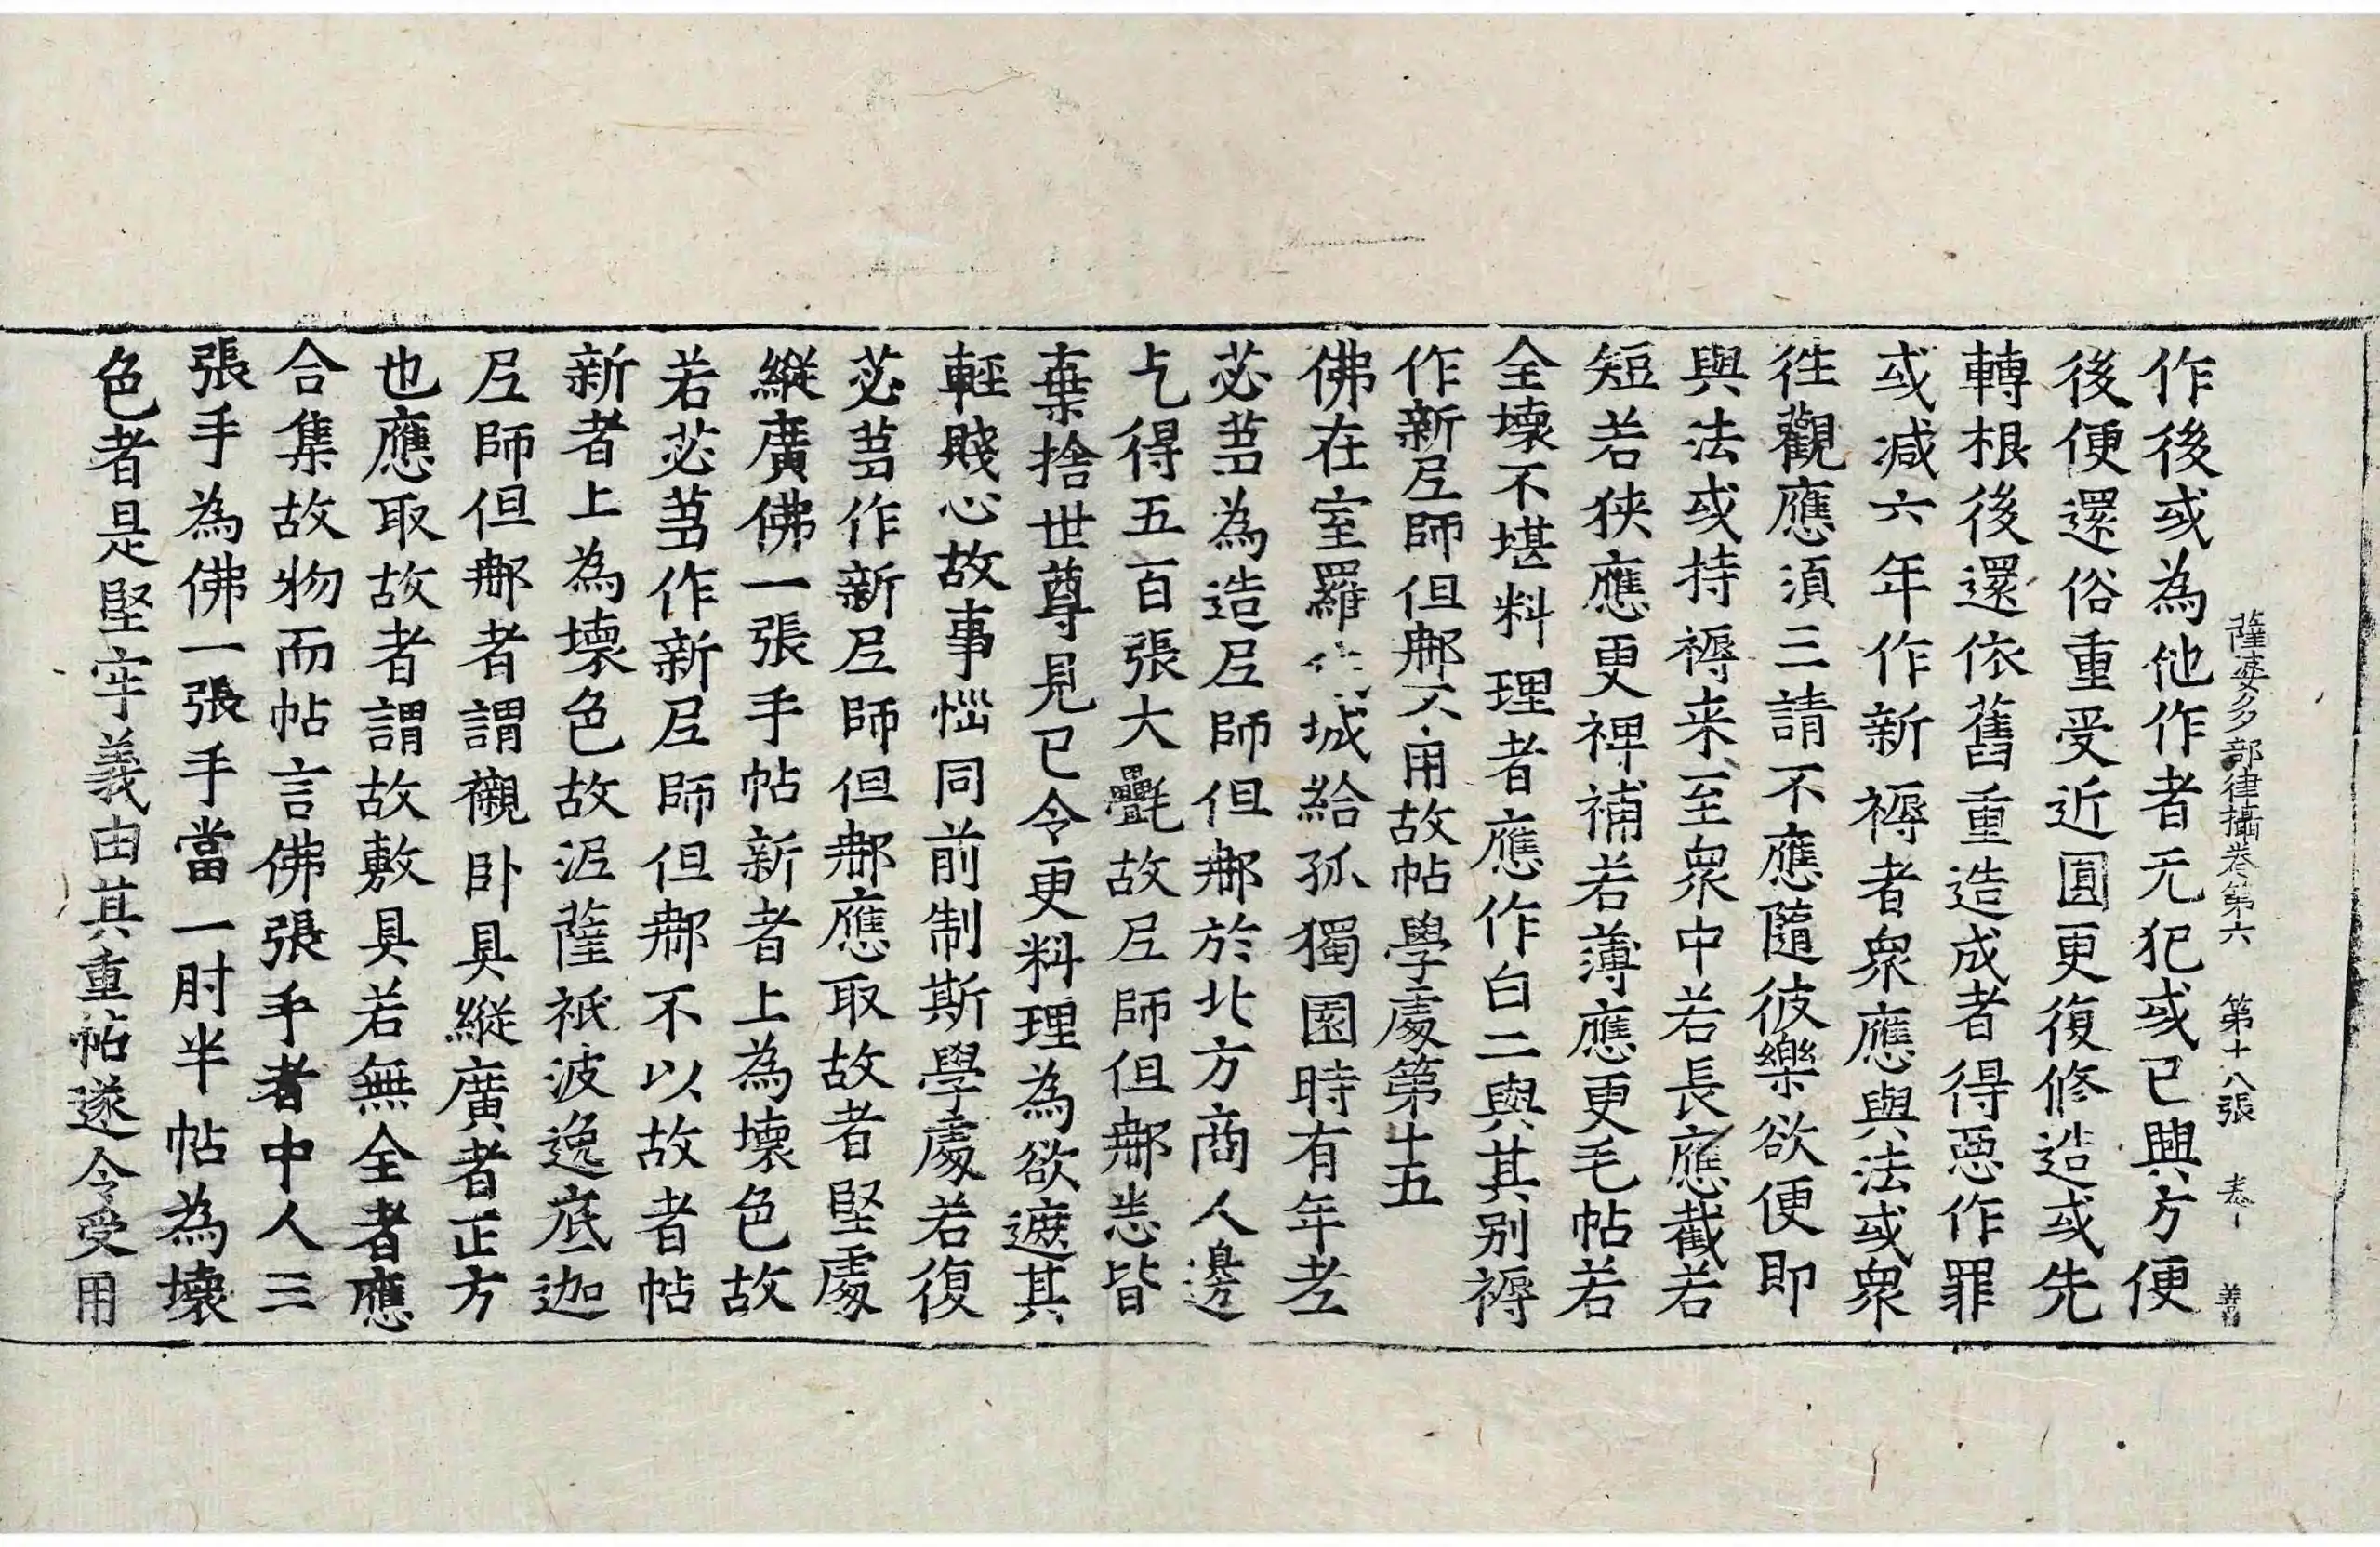 薩婆多部律攝卷第六 第十八張
作後或為他作者无犯或已興方便
後便還俗重受近圓更復修造或先
轉根後還依舊重造成者得惡作罪
或減六年作新褥者衆應與法或衆
徃觀應湏三請不應隨彼樂欲便即
與法或持褥来至衆中若長應截若
短若狹應更裨補若薄應更毛帖若
全壞不堪料理者應作白二與其别褥
作新𡰱師但𨚗不用故帖學處第十五
佛在室羅伐城給孤獨園時有年老
苾芻為造𡰱師但𨚗於北方商人邊
乞得五百張大㲲故𡰱師但𨚗悉皆
棄捨世尊見已令更料理為欲遮其
輕賤心故事惱同前制斯學處若復
苾芻作新𡰱師但𨚗應取故者堅處
縱廣佛一張手帖新者上為壞色故
若苾芻作新𡰱師但𨚗不以故者帖
新者上為壞色故泥薩祇波逸底迦
𡰱師但𨚗者謂襯卧具縱廣者正方
也應取故者謂故敷具若無全者應
合集故物而帖言佛張手者中人三
張手為佛一張手當一肘半帖為壞
色者是堅牢義由其重帖遂令受用